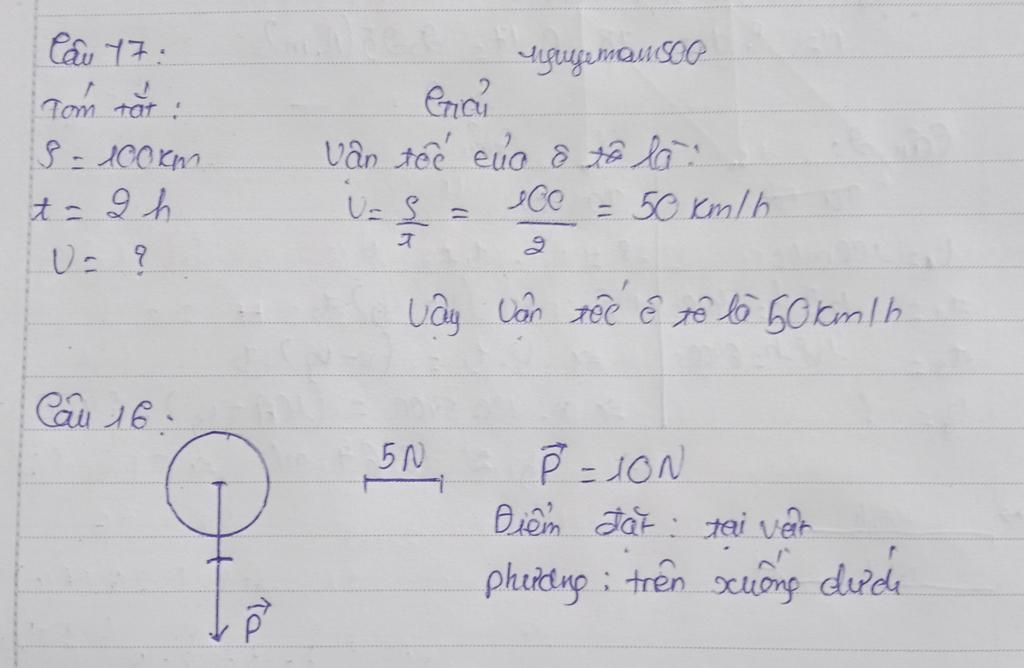 Câu 17:
nguyenam500
Tóm tắt:
Giải
S = 100km
Vận tốc của ô tô là:
t = 2 h
V = S/t = 100/2 = 50 km/h
V = ?
Vậy vận tốc ô tô là 50km/h
Câu 16:
5N
P = 10N
Điểm đặt: tại vật
phương: trên xuống dưới
P